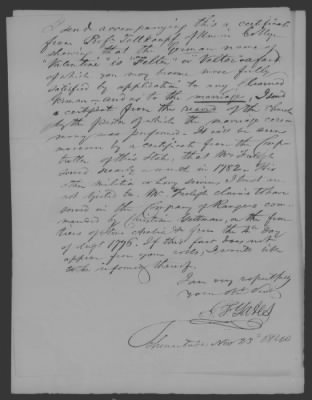 I send accompanying this a certificate
from Prof. Tellkampf of Union College
showing that the German name of
Valentine is "Felter" or
of which you may become more fully
satisfied by application to any learned
German - and as to the marriage, I send
a certificate from the record of the Church
by the Pastor of which the marriage cerem
ony was performed. It will be seen
moreover by a certificate from the Comp
troller of this State, that Mr Freligh
served nearly a month in 1782. His
other militia services, I trust are
not rejected. Mr Freligh claims to have
served in the Company of Rangers com
manded by Christian Getman, on the fron
tiers of from the 4th day
of Augt 1776. If this fact does not
appear from your rolls, I would like
to be informed thereof.
I am very respectfully
your Obt. Servt.
Yates
Schenectady, Nov 23d